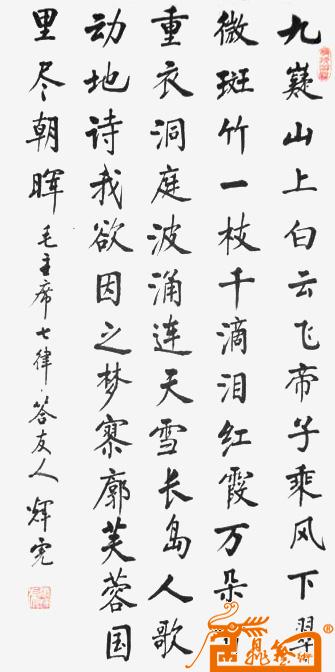 九嶷山上白云飞帝子乘风下翠
微斑竹一枝千滴泪红霞万朵
重衣洞庭波涌连天雪长岛人歌
动地诗我欲因之梦寥廓芙蓉国
里尽朝晖 毛主席七律·答友人 辉